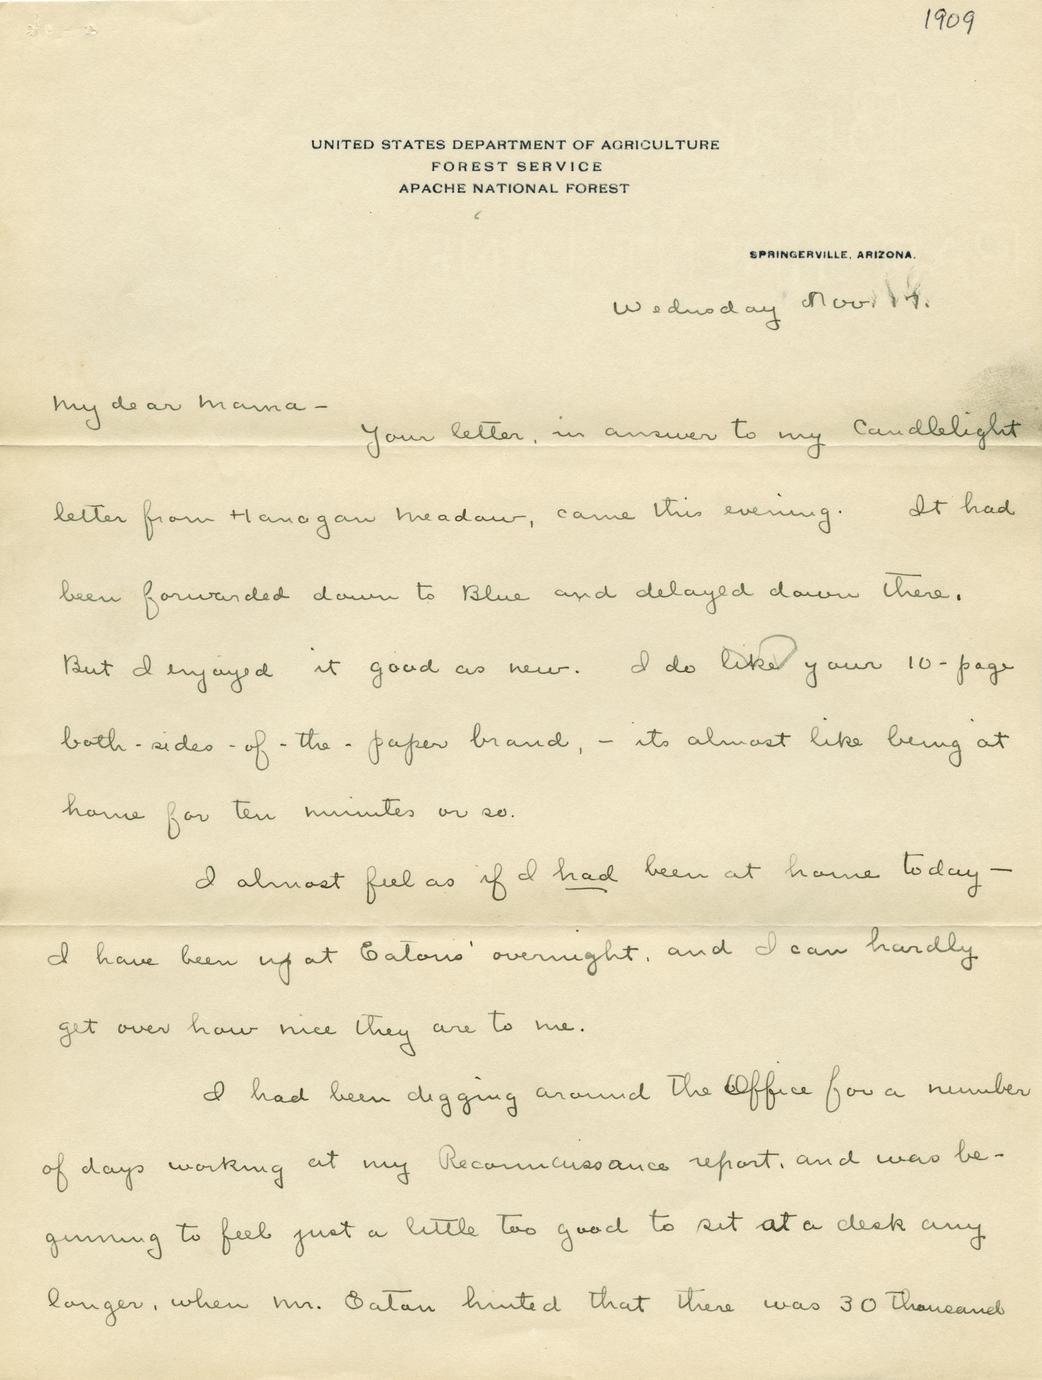 1909
UNITED STATES DEPARTMENT OF AGRICULTURE
FOREST SERVICE
APACHE NATIONAL FOREST
SPRINGERVILLE, ARIZONA.
Wednsday Nov. 17.
My dear Mama –
Your letter, in answer to my Candlelight
letter from Hanagan Meadow, came this evening. It had
been forwarded down to Blue and delayed down there.
But I enjoyed it good as new. I do like your 10-page
both-sides-of-the-paper brand, – its almost like being at
home for ten minutes or so.
I almost feel as if I had been at home today –
I have been up at Eatons' overnight, and I can hardly
get over how nice they are to me.
I had been digging around the Office for a number
of days working at my Reconnaissance report, and was be-
ginning to feel just a little too good to sit at a desk any
longer, when Mr. Eaton hinted that there was 30 thousand